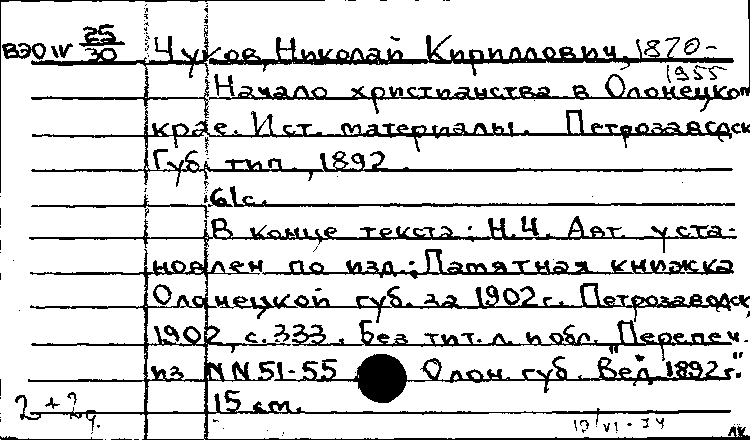 ВЭО IV 25/30 Чуков, Николай Кириллович, 1870-
1955
Начало христианства в Олонецком
крае. Ист. материалы. Петрозаводск
Губ. тип., 1892.
61с.
В конце текста: Н.Ч. Авт. уста-
новлен по изд.: Памятная книжка
Олонецкой губ. за 1902г. Петрозаводск,
1902, с. 333. Без тит. л. и обл. Перепеч.
из NN 51-55 "Олон. губ. Вед. 1892г."
15 см.
2+2д.
19/VI-74